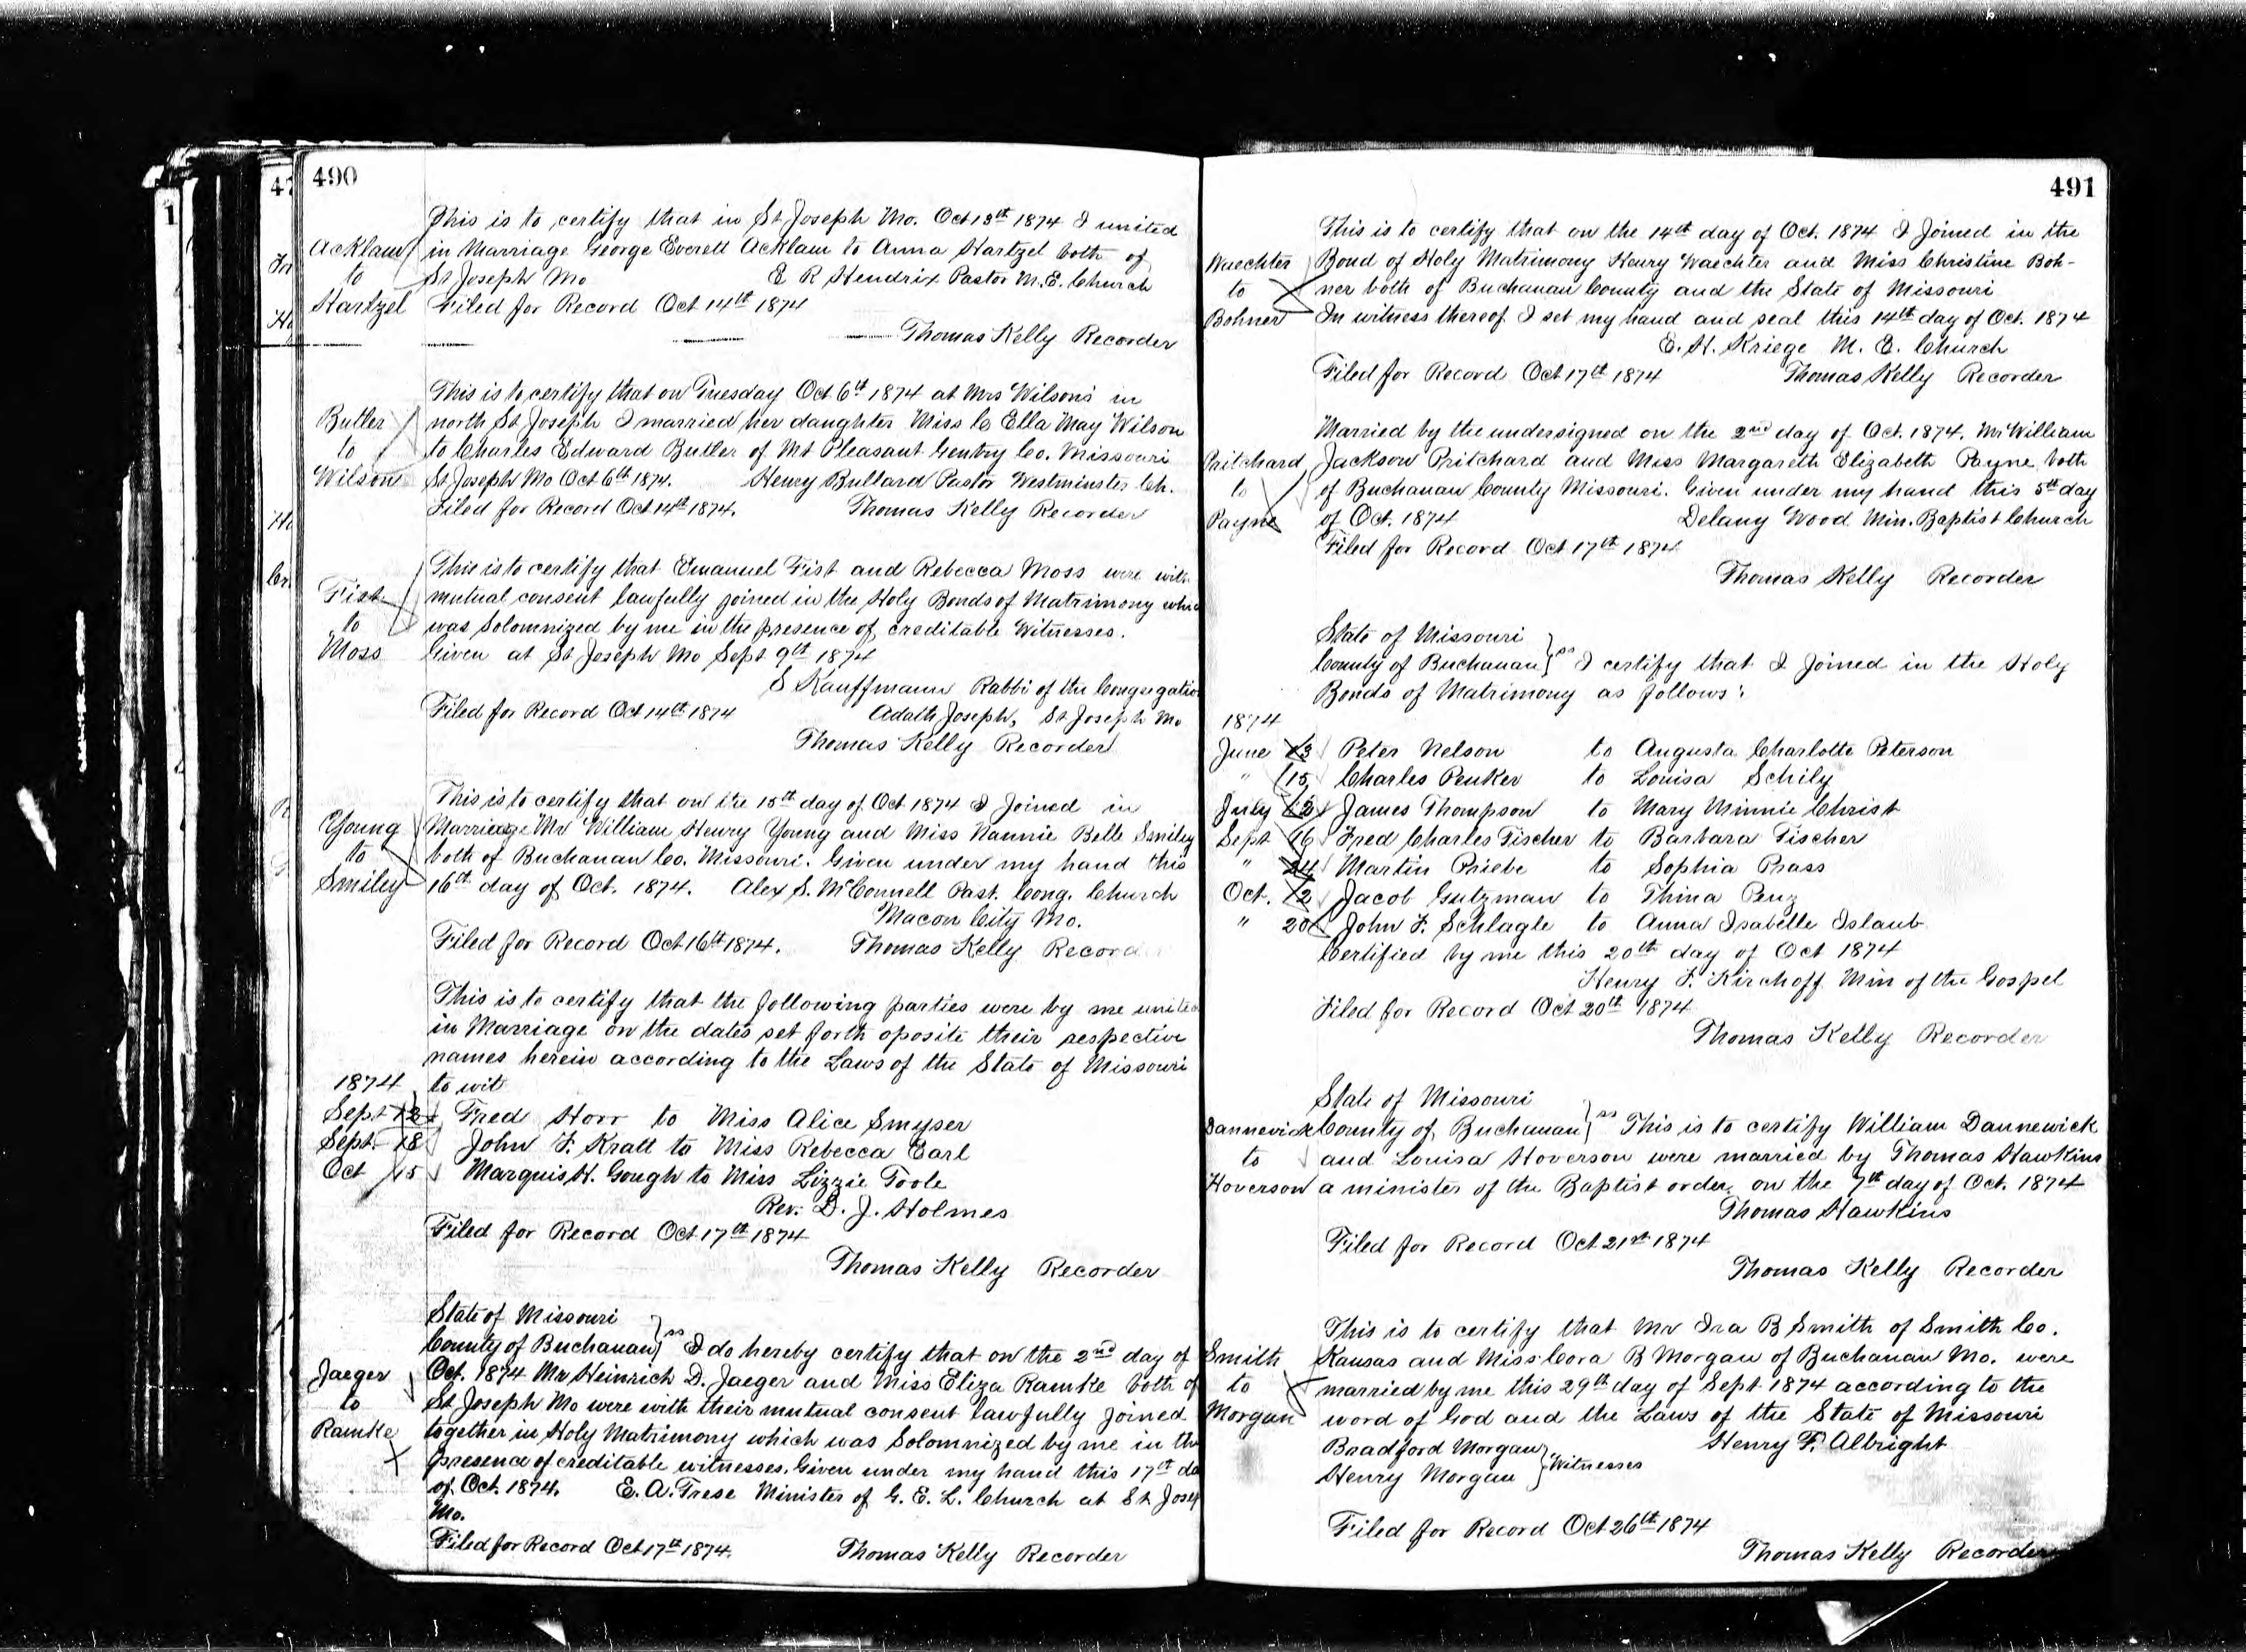 490
This is to certify that in St Joseph Mo. Oct 13th 1874 I united
Acklam in Marriage George Everett Acklam to Anna Hartzel both of
to St Joseph Mo E R Hendrix Pastor M.E. Church
Hartzel Filed for Record Oct 14th 1874
Thomas Kelly Recorder
This is to certify that on Tuesday Oct 6th 1874 at Mrs Wilson's in
Butler north St Joseph I married her daughter Miss C Ella May Wilson
to to Charles Edward Butler of Mt Pleasant Gentry Co. Missouri
Wilson St Joseph Mo Oct 6th 1874. Henry Bullard Pastor Westminster Ch.
Filed for Record Oct 14th 1874. Thomas Kelly Recorder
This is to certify that Emanuel Fist and Rebecca Moss were with
Fist mutual consent lawfully joined in the Holy Bonds of Matrimony whic
to was Solomnized by me in the presence of creditable Witnesses.
Moss Given at St Joseph Mo Sept 9th 1874
S Kauffmann Rabbi of the Congregatio
Filed for Record Oct 14th 1874 Adath Joseph, St Joseph Mo
Thomas Kelly Recorder
This is to certify that on the 15th day of Oct 1874 I Joined in
Young Marriage Mr William Henry Young and Miss Nannie Belle Smiley
to both of Buchanan Co. Missouri. Given under my hand this
Smiley 16th day of Oct. 1874. Alex S. McConnell Past. Cong. Church
Macon City Mo.
Filed for Record Oct 16th 1874. Thomas Kelly Record
This is to certify that the following parties were by me unite
in Marriage on the dates set forth oposite their respective
names herein according to the Laws of the State of Missouri
1874 to wit
Sept 12 Fred Horr to Miss Alice Smyser
Sept. 18 John F. Kratt to Miss Rebecca Earl
Oct 15 Marquis H. Gough to Miss Lizzie Toole
Rev. D. J. Holmes
Filed for Record Oct 17th 1874
Thomas Kelly Recorder
State of Missouri
County of Buchanan} ss I do hereby certify that on the 2nd day of
Jaeger Oct. 1874 Mr Heinrich D. Jaeger and Miss Eliza Ramke both of
to St Joseph Mo were with their mutual consent lawfully joined
Ramke together in Holy Matrimony which was Solomnized by me in the
presence of creditable witnesses. Given under my hand this 17th da
of Oct. 1874. E. A. Frese Minister of G. E. L. Church at St Josep
Mo.
Filed for Record Oct 17th 1874. Thomas Kelly Recorder
491
This is to certify that on the 14th day of Oct. 1874 I Joined in the
Waechter Bond of Holy Matrimony Henry Waechter and Miss Christine Boh-
to ner both of Buchanan County and the State of Missouri
Bohner In witness thereof I set my hand and seal this 14th day of Oct. 1874
E. H. Kriege M. E. Church
Filed for Record Oct 17th 1874 Thomas Kelly Recorder
Married by the undersigned on the 2nd day of Oct. 1874. Mr William
Pritchard Jackson Pritchard and Miss Margareth Elizabeth Payne both
to of Buchanan County Missouri. Given under my hand this 5th day
Payne of Oct. 1874 Delany Wood Min. Baptist Church
Filed for Record Oct 17th 1874
Thomas Kelly Recorder
State of Missouri
County of Buchanan} ss I certify that I Joined in the Holy
Bonds of Matrimony as follows:
1874
June Peter Nelson to Augusta Charlotte Peterson
" 15 Charles Penker to Louisa Schily
July 12 James Thompson to Mary Minnie Christ
Sept 16 Fred Charles Fischer to Barbara Fischer
" 24 Martin Priebe to Sophia Prass
Oct. 12 Jacob Gutzman to Thina Penz
" 20 John F. Schlagle to Anna Isabelle Islaub
Certified by me this 20th day of Oct 1874
Henry F. Kirchoff Min of the Gospel
Filed for Record Oct 20th 1874
Thomas Kelly Recorder
State of Missouri
Dannewick County of Buchanan} ss This is to certify William Dannewick
to and Louisa Hoverson were married by Thomas Hawkins
Hoverson a minister of the Baptist order, on the 7th day of Oct. 1874
Thomas Hawkins
Filed for Record Oct 21st 1874
Thomas Kelly Recorder
This is to certify that Mr Ira B Smith of Smith Co.
Smith Kansas and Miss Cora B Morgan of Buchanan Mo. were
to married by me this 29th day of Sept 1874 according to the
Morgan word of God and the Laws of the State of Missouri
Bradford Morgan Henry F. Albright
Henry Morgan } Witnesses
Filed for Record Oct 26th 1874
Thomas Kelly Recorder